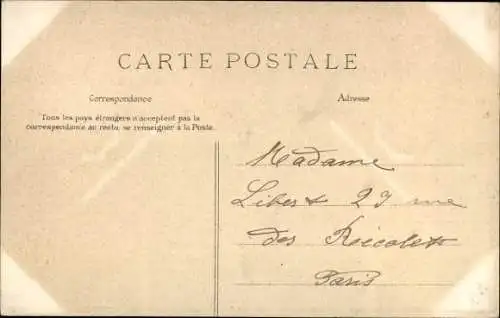 CARTE POSTALE
Correspondance
Adresse
Tous les pays étrangers n'acceptent pas la
correspondance au recto, se renseigner à la Poste.
Madame
Libert 27 rue
des Récolets
Paris